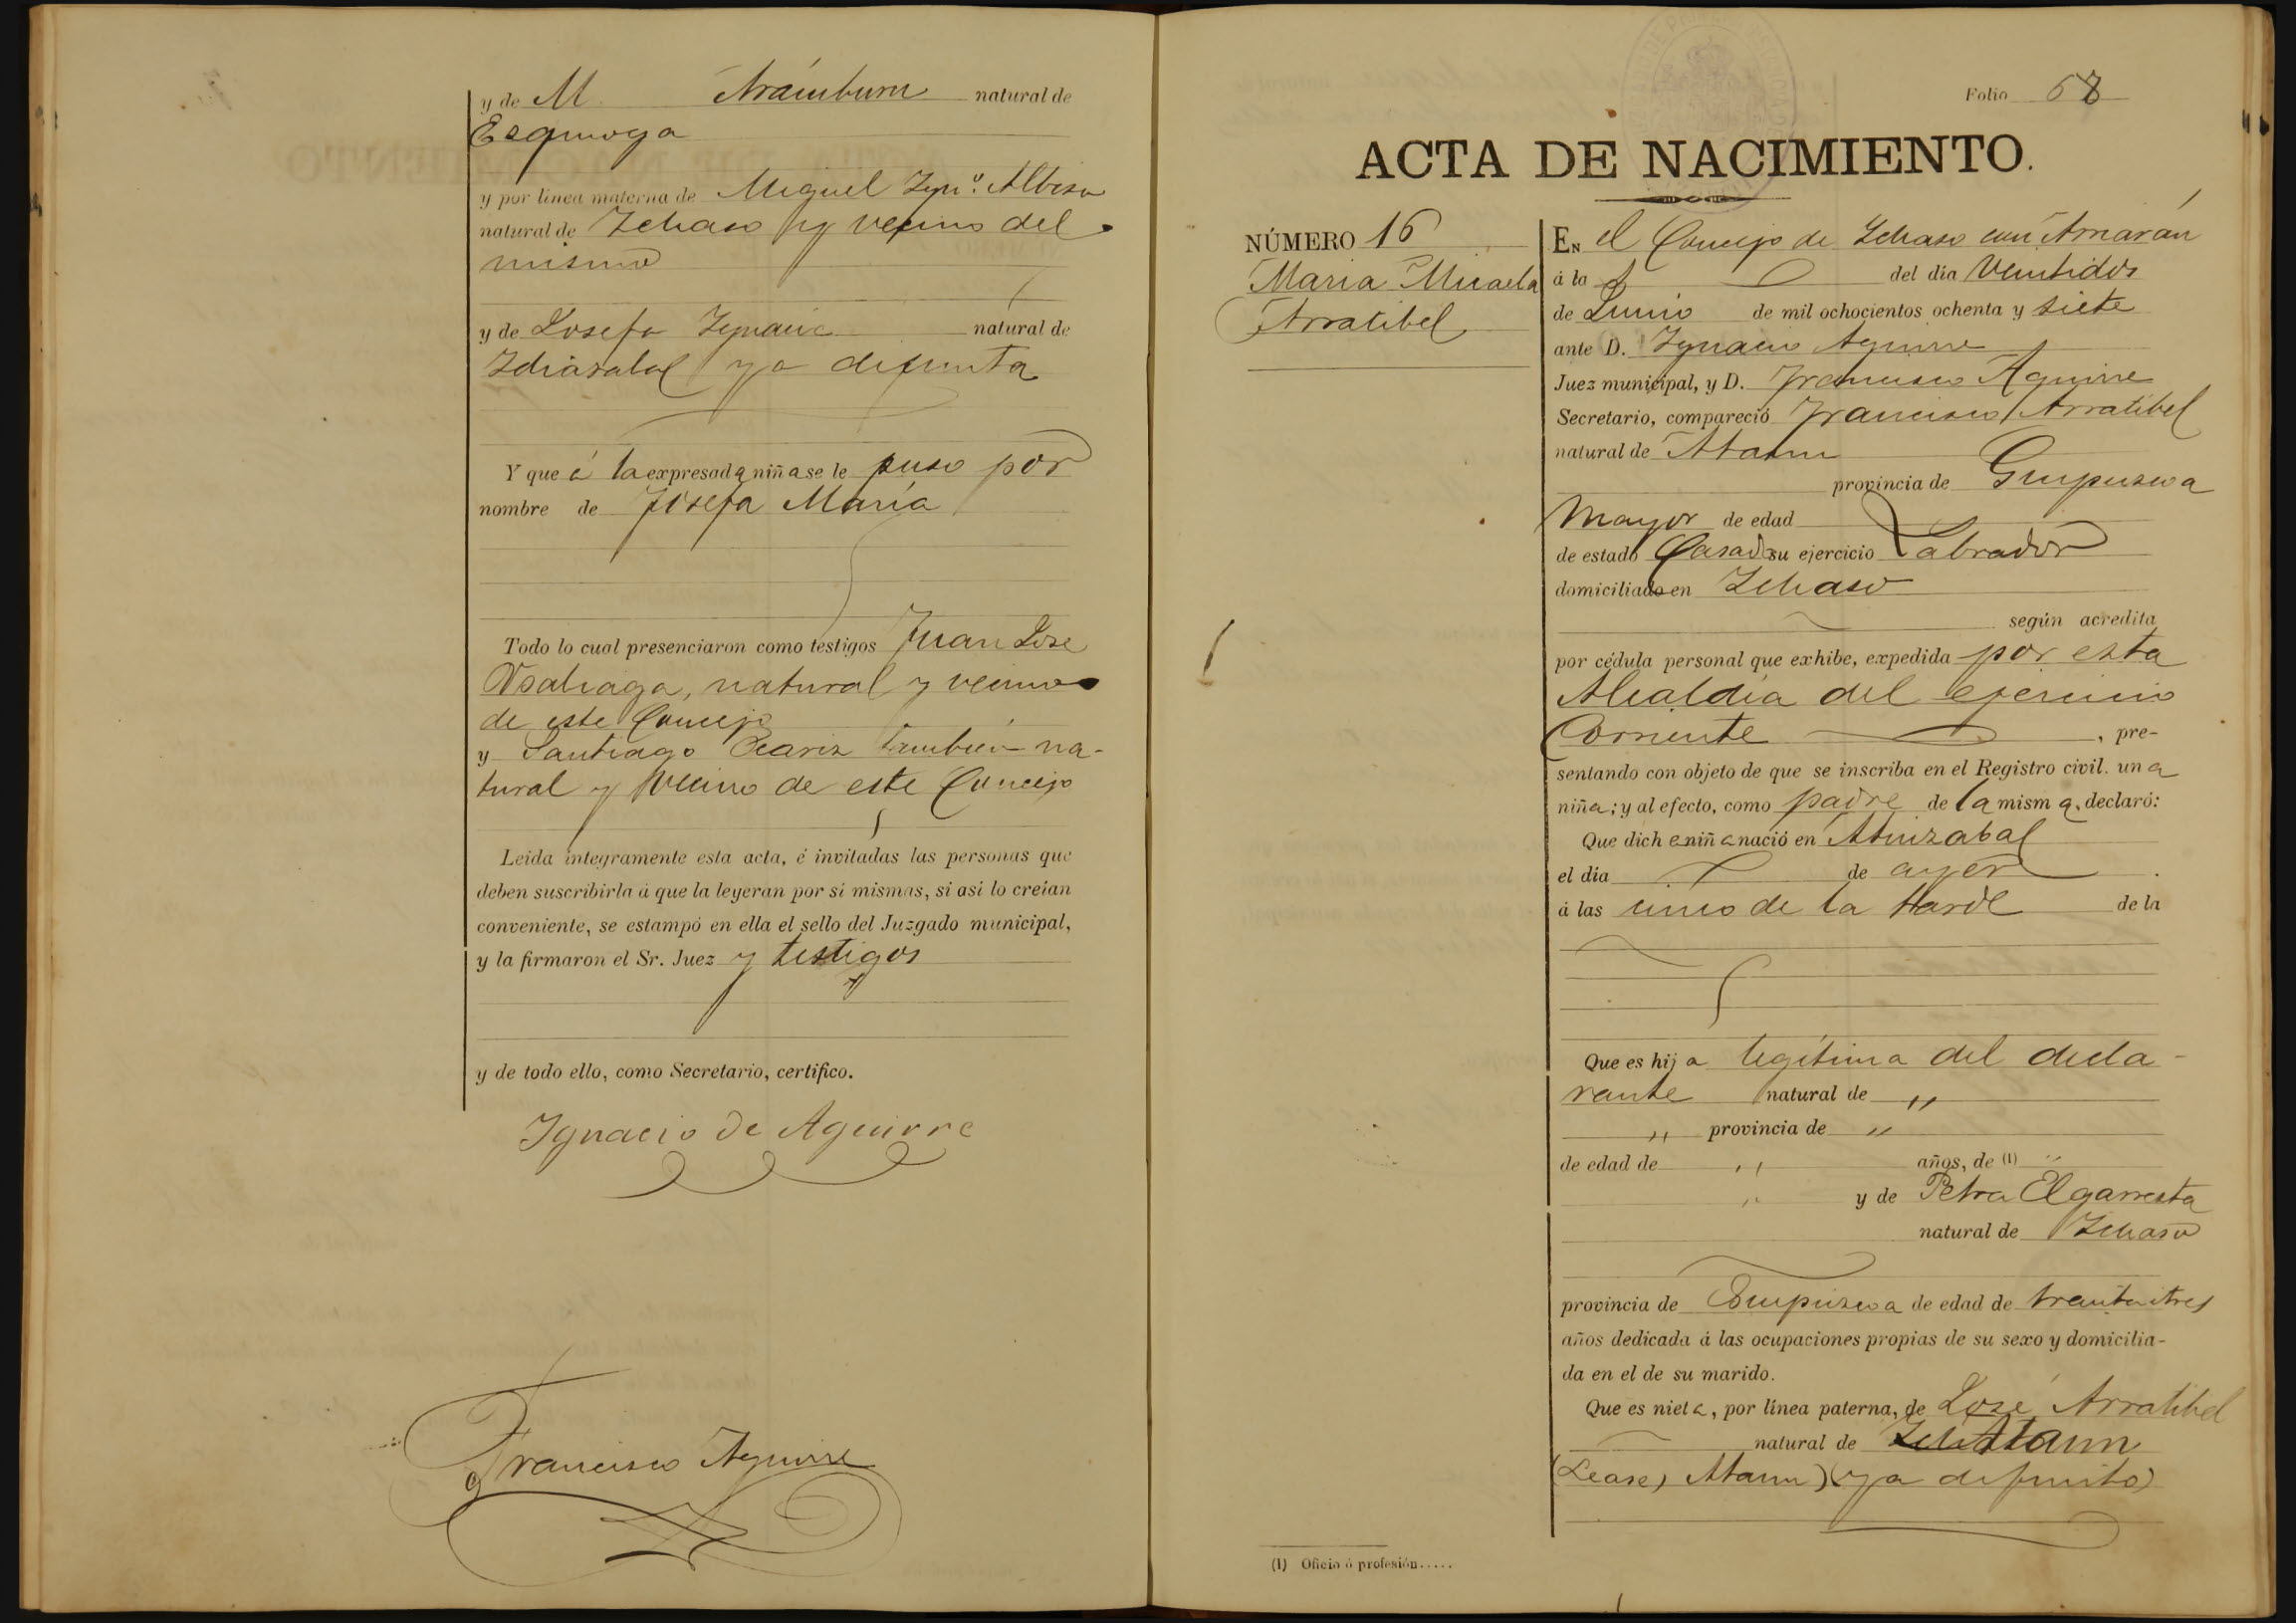 y de M. Arámburu natural de
Ezquioga
y por línea materna de Miguel Ign.º Albisu
natural de Ichaso y vecino del
mismo
y de Josefa Ignacia natural de
Idiazabal ya difunta
Y que á la expresada niña se le puso por
nombre de Josefa María
Todo lo cual presenciaron como testigos Juan José
natural y vecino
de este Concejo
y Santiago también na-
tural y vecino de este Concejo
Leída íntegramente esta acta, é invitadas las personas que
deben suscribirla á que la leyeran por sí mismas, si así lo creían
conveniente, se estampó en ella el sello del Juzgado municipal,
y la firmaron el Sr. Juez y testigos
y de todo ello, como Secretario, certifico.
Ignacio de Aguirre
Francisco Aguirre
Folio 58
ACTA DE NACIMIENTO.
NÚMERO 16
Maria Micaela
Arratibel
En el Concejo de Ichaso con Arnarán
á la del día veintidos
de Junio de mil ochocientos ochenta y siete
ante D. Ignacio Aguirre
Juez municipal, y D. Francisco Aguirre
Secretario, compareció Francisco Arratibel
natural de Ataun
provincia de Guipuzcoa
Mayor de edad
de estado Casado su ejercicio Labrador
domiciliado en Ichaso
según acredita
por cédula personal que exhibe, expedida por esta
Alcaldía del ejercicio
Corriente, pre-
sentando con objeto de que se inscriba en el Registro civil. una
niña; y al efecto, como padre de la misma, declaró:
Que dicha niña nació en
el día de ayer
á las cinco de la tarde de la
Que es hija legítima del decla-
rante natural de "
" provincia de "
de edad de " años, de (1) "
" y de Petra Elgarresta
natural de Ichaso
provincia de Guipuzcoa de edad de treinta y tres
años dedicada á las ocupaciones propias de su sexo y domicilia-
da en el de su marido.
Que es nieta, por línea paterna, de José Arratibel
natural de Ataun
(Lease, Ataun) (ya difunto)
(1) Oficio ó profesión.....